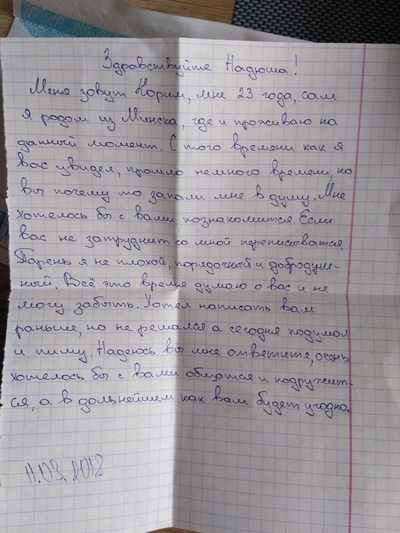 Здравствуйте Надюша!
Меня зовут Карим, мне 23 года, сам
я родом из Минска, где и проживаю на
данный момент. С того времени как я
вас увидел, прошло немного времени, но
вы почему то запали мне в душу. Мне
хотелось бы с вами познакомится. Если
вас не затруднит со мной переписыватся.
Парень я не плохой, порядочный и добродуш-
ный. Всё это время думаю о вас и не
могу забыть. Хотел написать вам
раньше, но не решался а сегодня подумал
и пишу. Надеюсь вы мне ответите, очень
хотелось бы с вами общатся и подружит-
ся, а в дальнейшем как вам будет угодно.
11.03.2018